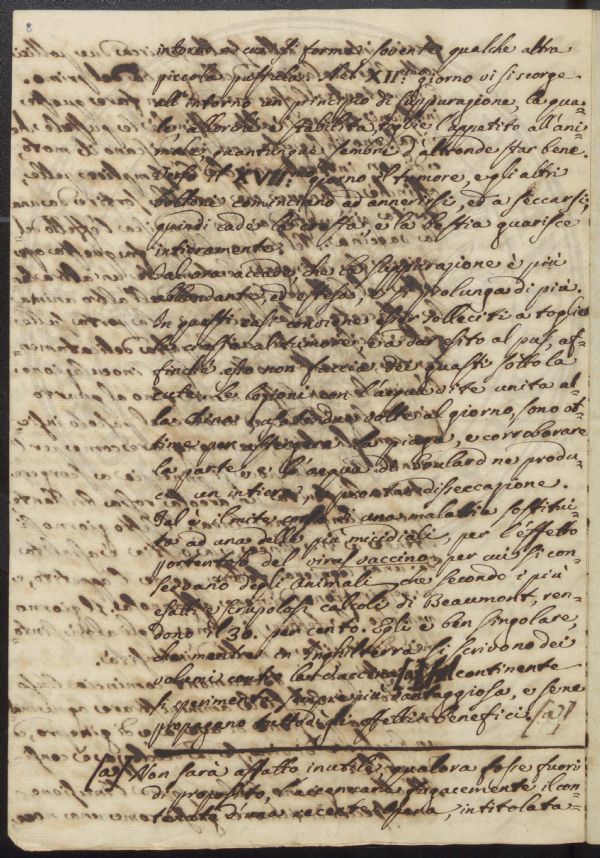 8
intorno a cui si forma sovente qualche altra
piccola pustula. Nel XII.mo giorno vi si scorge
all'intorno un principio di suppurazione, la qua=
le, allorchè è stabilita, toglie l'appetito all'ani=
male, quantunque sembri d'altronde star bene.
Verso il XVII.mo giorno il tumore, e gli altri
bottoni cominciano ad annerirsi, ed a seccarsi;
quindi cade la crosta, e la bestia guarisce
intieramente.
Talvora accade, che la suppurazione è più
abbondante, ed estesa, e si prolunga di più.
In questi casi conviene esser solleciti a toglier
la crosta al tumore, e a dar esito al pus, af=
finchè esso non faccia dei guasti sotto la
cute. Le lozioni con l'acqua vite unita al=
la China usate due volte al giorno, sono ot=
time per astergere la piaga, e corroborare
la parte, e l'acqua di Goulard ne produ=
ce un intiera, e pronta disseccazione.
Tal è il mite corso di una malattia sostitui=
ta ad una delle più micidiali, per l'effetto
portentoso del virus vaccino, per cui si con=
servano degli animali che secondo i più
esatti e scrupolosi calcoli di Beaumont, ren=
dono il 30. per cento. Egli è ben singolare,
che mentre in Inghilterra si scrivono dei
volumi contro la vaccina, sul continente
si sperimenta sempre più vantaggiosa, e se ne
propagano tuttodì gli effetti benefici. [a]
[a] Non sarà affatto inutile, qualora fosse fuori
di proposito, l'accennare fugacemente il con=
tenuto d'una recente opera, intitolata=